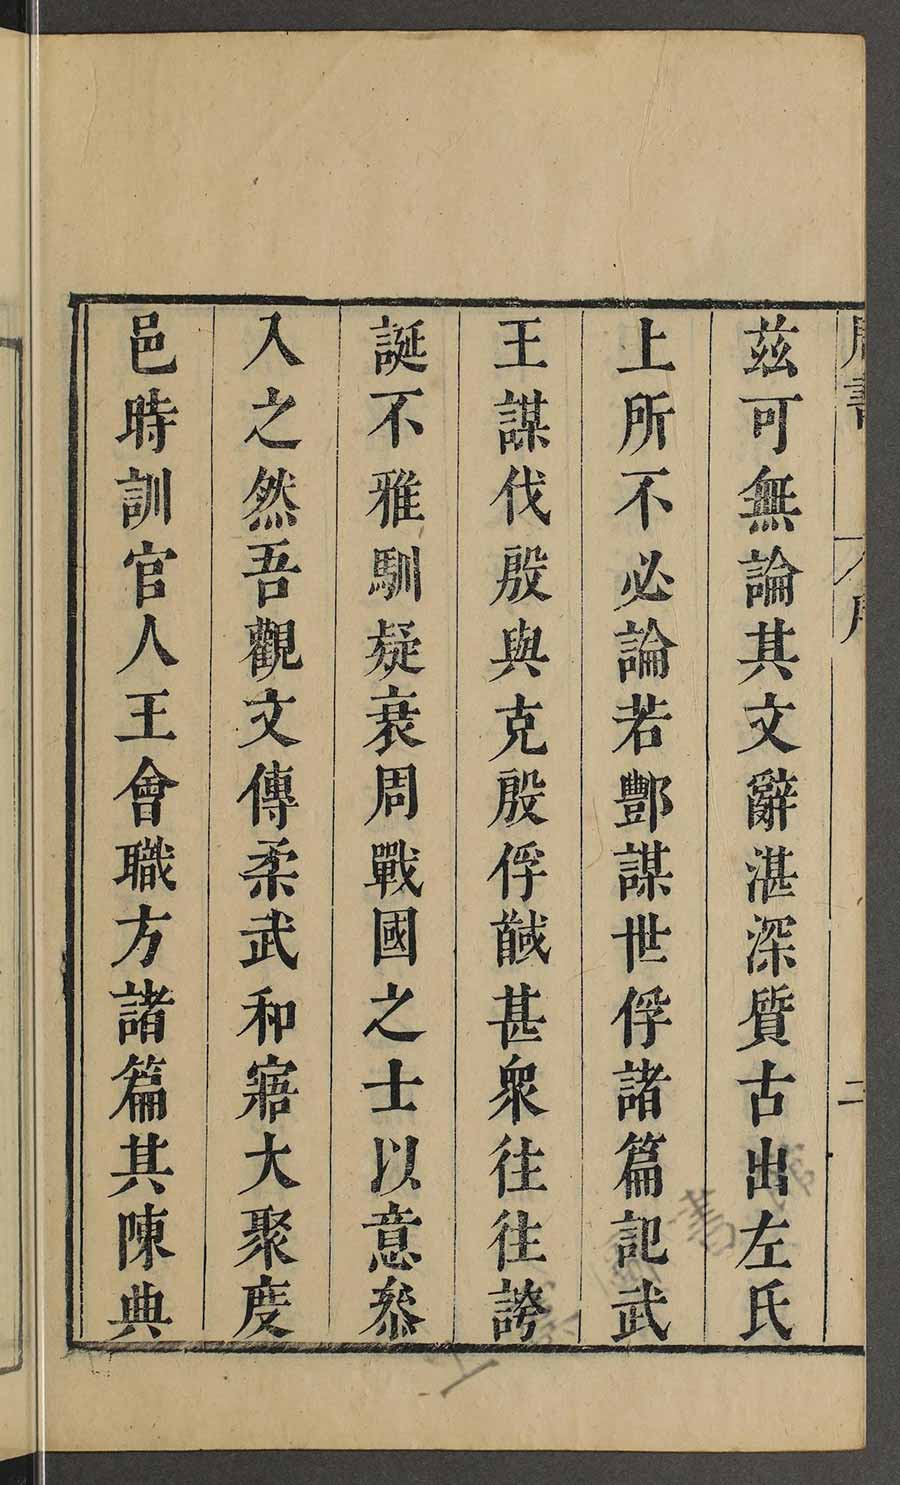 周書 序 二
茲可無論其文辭湛深質古出左氏
上所不必論若酆謀世俘諸篇記武
王謀伐殷與克殷俘馘甚衆往往誇
誕不雅馴疑衰周戰國之士以意叅
入之然吾觀文傳柔武和寤大聚度
邑時訓官人王會職方諸篇其陳典